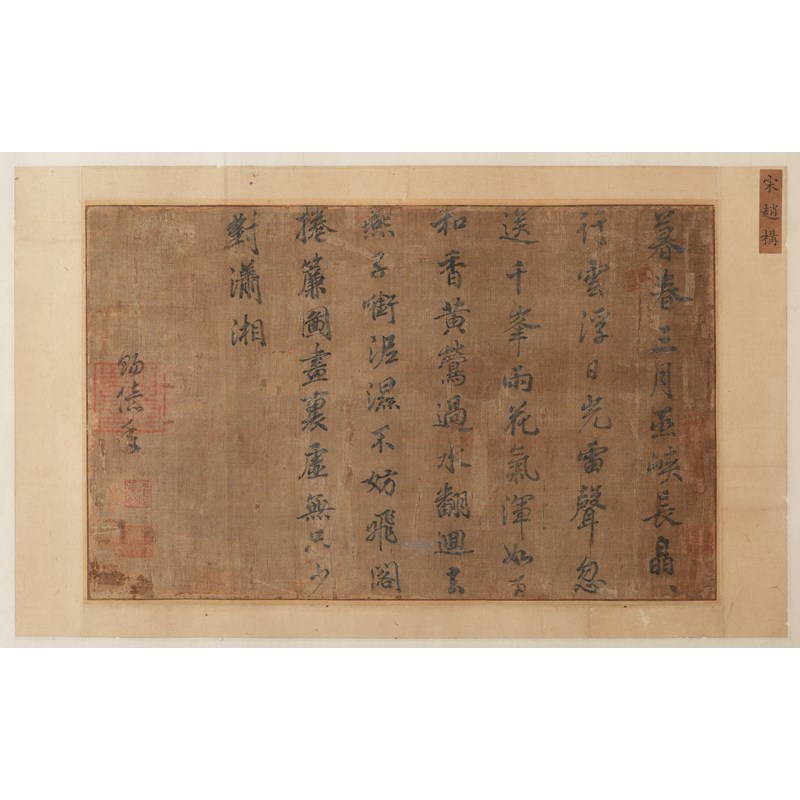 宋趙構
暮春三月巫峽長皛〻
行雲浮日光雷聲忽
送千峯雨花氣渾如百
和香黃鶯過水翻迴去
燕子銜泥濕不妨飛閣
捲簾圖畫裏虛無只少
對瀟湘
賜億年